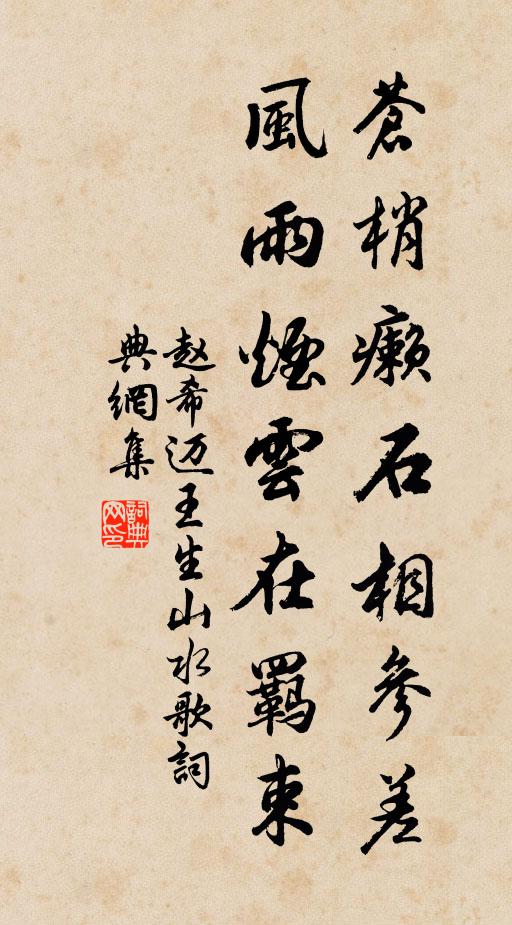 蒼梢癩石相參差
風雨煙雲在羈束
赵希迈王生山水歌詞
典網集
詞典
网印